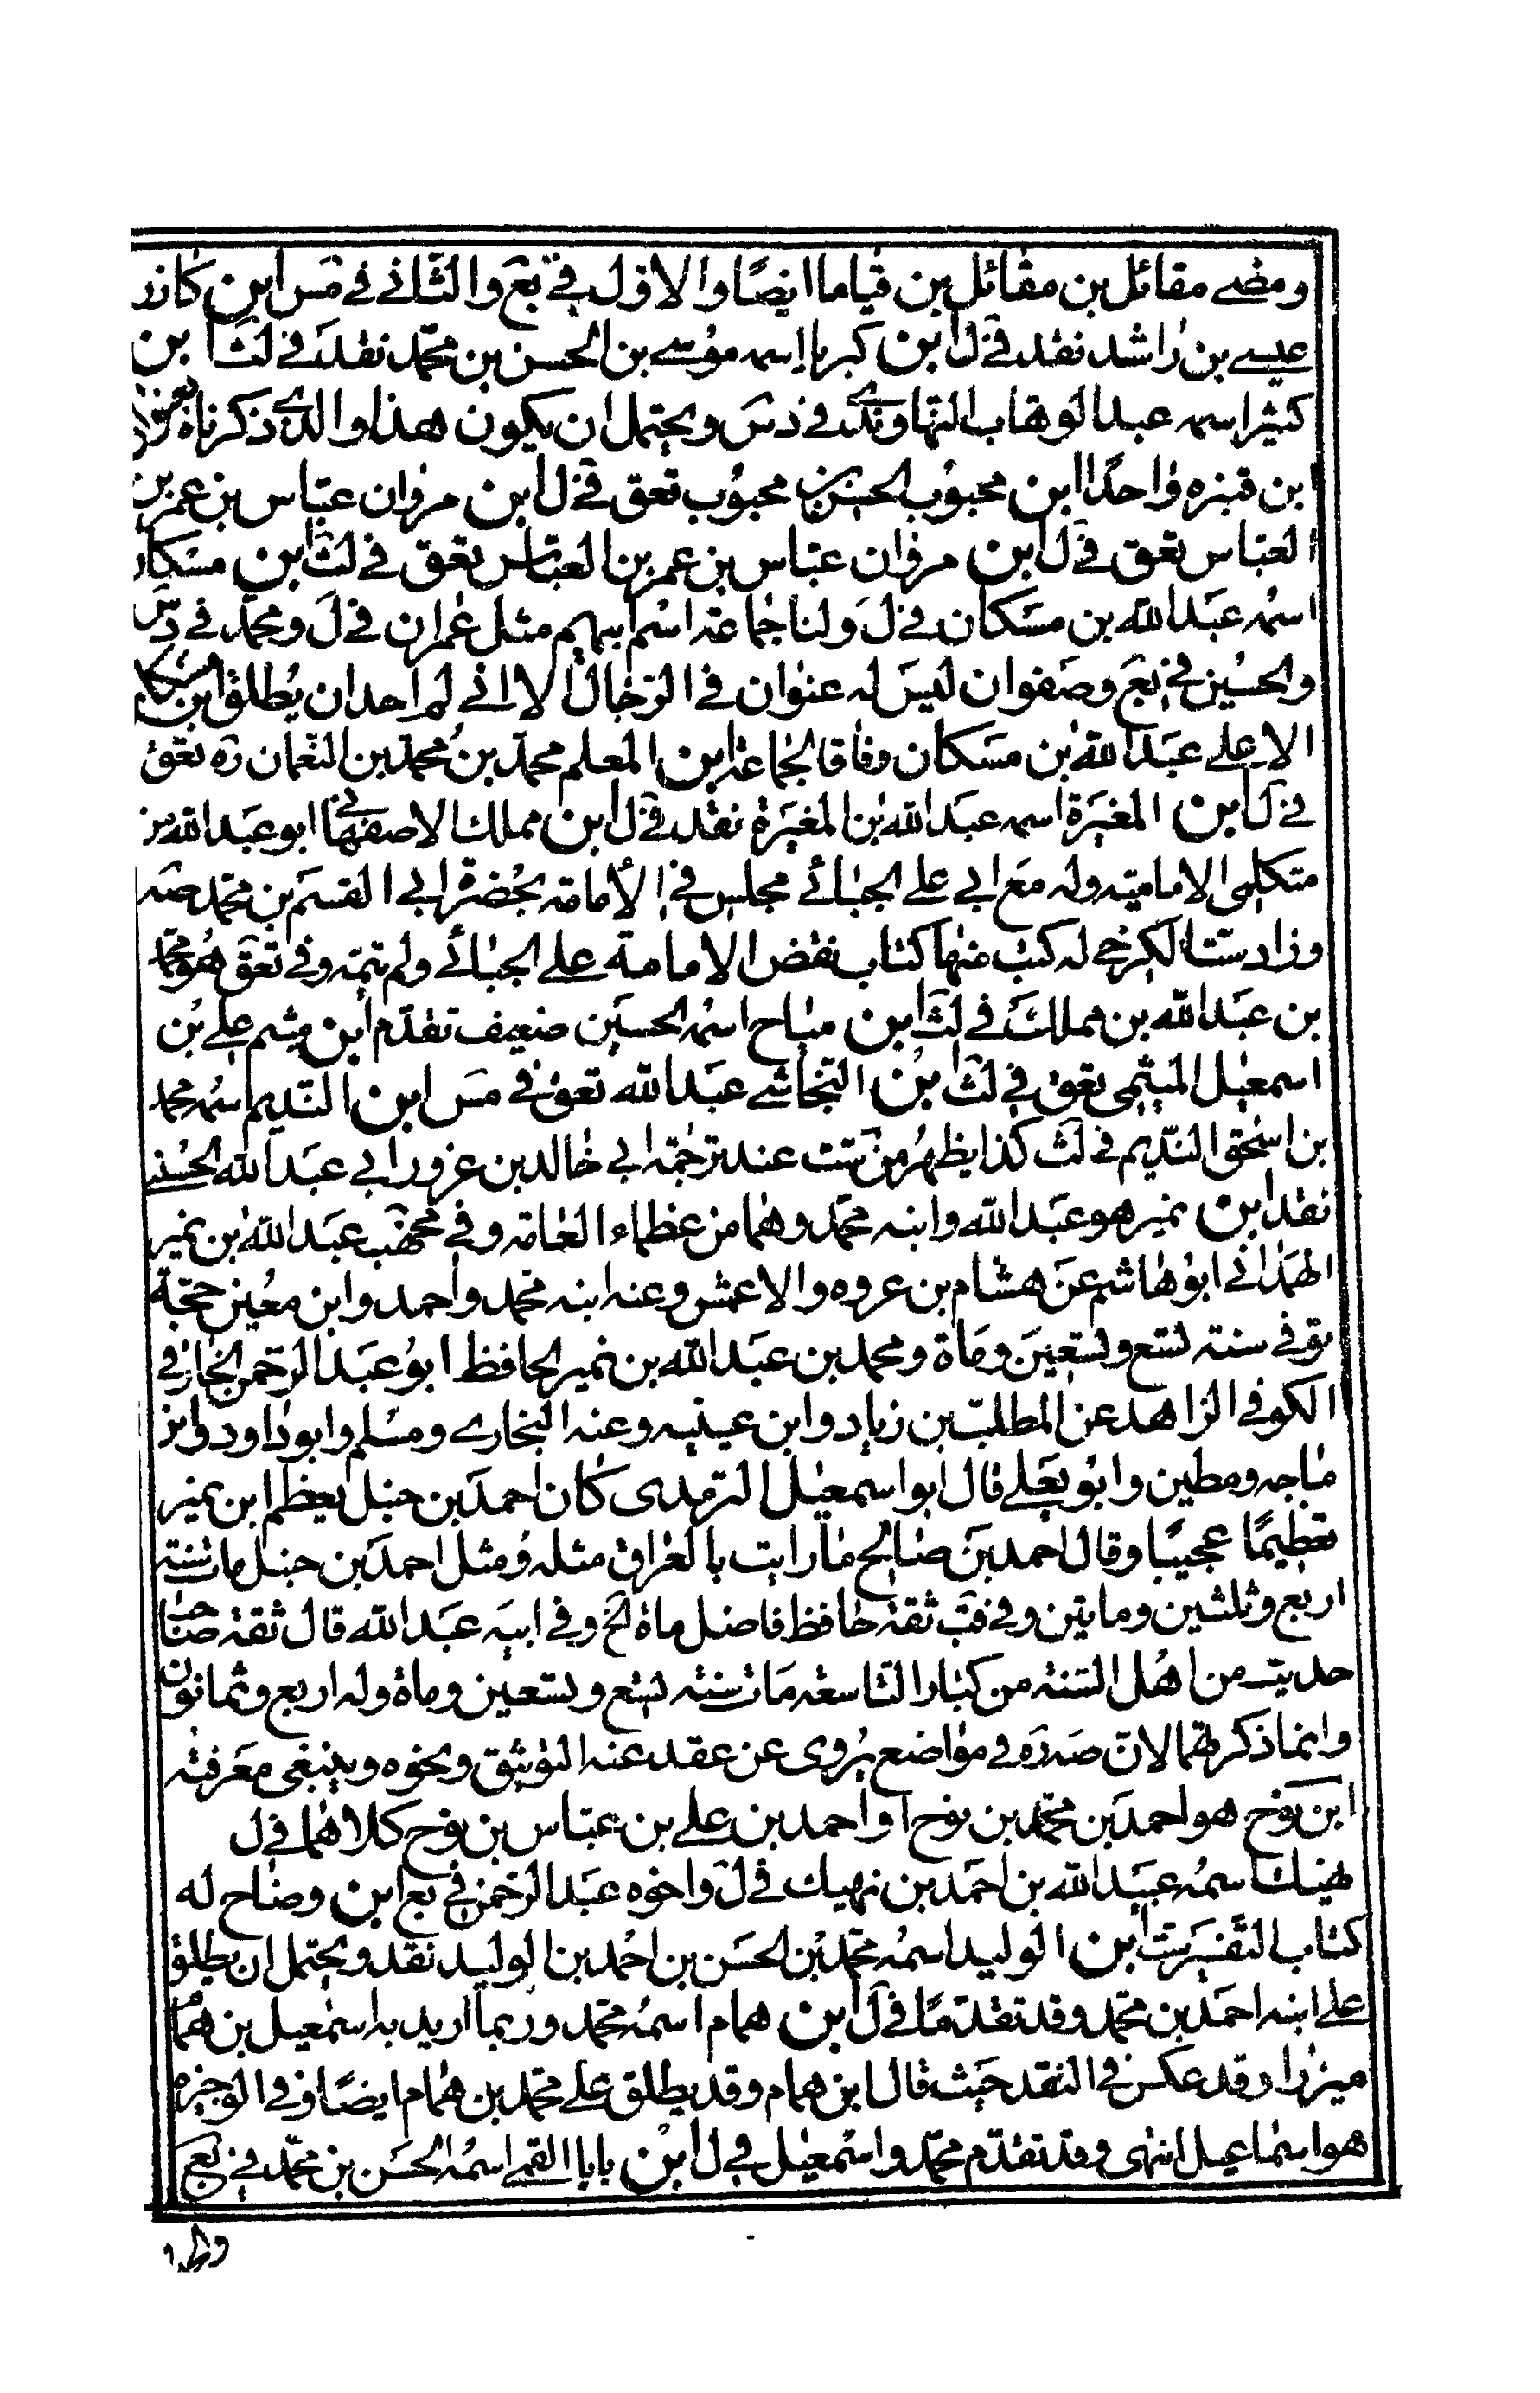 ومضى مقاتل بن مقاتل بن قياما ايضًا والاول في بع والثاني في مس ابن كازر
عيسى بن راشد نقد في ل ابن كبريا اسمه موسى بن الحسن بن محمد نقد في لث ابن
كثير اسمه عبد الوهاب النهاوندي في دس ويحتمل ان يكون هذا والذي ذكرناه
ابن قنبره واحدًا ابن محبوب الحسن بن محبوب تعق في ل ابن مروان عباس بن عمر بن
العباس تعق في ل ابن مروان عباس بن عمر بن العباس تعق في لث ابن مسكان
اسمه عبد الله بن مسكان في ل ولنا جماعة اسم ابيهم مثل عمران في ل ومحمد في دس
والحسين في بع وصفوان ليس له عنوان في الرجال الا اني لم احد ان يطلق ابن مسكان
الا على عبد الله بن مسكان وفاقا لجماعة ابن المعلم محمد بن محمد بن النعمان ره تعق
في ل ابن المغيرة اسمه عبد الله بن المغيرة نقد في ل ابن مملك الاصفهاني ابو عبد الله من
متكلمي الامامية وله مع ابي علي الجبائي مجلس في الامامة بحضرة ابي القسم بن محمد صه
وزاد ست الكرخي له كتب منها كتاب نقض الامامة على الجبائي ولم يتمه وفي تعق هو محمد
بن عبد الله بن مملك في لث ابن مياح اسمه الحسين ضعيف تقدم ابن ميثم علي بن
اسمعيل الميثمي تعق في لث ابن النجاشي عبد الله تعق في مس ابن النديم اسمه محمد
بن اسحق النديم في لث كذا يظهر من ست عند ترجمة ابي خالد بن عزور ابي عبد الله الحسنى
نقد ابن نمير هو عبد الله وابنه محمد وهما من عظماء العامة وفي مخهب عبد الله بن نمير
الهمداني ابو هاشم عن هشام بن عروه والاعمش وعنه ابنه محمد واحمد وابن معين حجة
توفي سنة تسع وتسعين وماة ومحمد بن عبد الله بن نمير الحافظ ابو عبد الرحمن الخارفي
الكوفي الزاهد عن المطلب بن زياد وابن عيينه وعنه البخاري ومسلم وابو داود وابن
ماجه ومطين وابو يعلى قال ابو اسمعيل الترمدى كان احمد بن حنبل يعظم ابن نمير
تعظيمًا عجيبًا وقال احمد بن صالح ما رايت بالعراق مثله ومثل احمد بن حنبل مات سنة
اربع وثلثين وماتين وفي قب ثقة حافظ فاضل ماة لخ وفي ابيه عبد الله قال ثقة صاحب
حديث من اهل السنة من كبار التاسعة مات سنة تسع وتسعين وماة وله اربع وثمانون
وانما ذكرتهما لان صه ره في مواضع يروى عن عقد عنه التوثيق ونحوه وينبغي معرفته
ابن نوح هو احمد بن محمد بن نوح او احمد بن علي بن عباس بن نوح كلاهما في ل
نهيك اسمه عبيد الله بن احمد بن نهيك في ل واخوه عبد الرحمن في بع ابن وضاح له
كتاب التفسير ست ابن الوليد اسمه محمد بن الحسن بن احمد بن الوليد نقد ويحتمل ان يطلق
على ابنه احمد بن محمد وقد تقدمًا في ل ابن همام اسمه محمد وربما اريد به اسمعيل بن همام
ميرزا وقد عكس في النقد حيث قال ابن همام وقد يطلق على محمد بن همام ايضًا وفي الوجيزه
هو اسماعيل انتهى وقد تقدم محمد واسمعيل في ل ابن بابا القمي اسمه الحسن بن محمد في بع